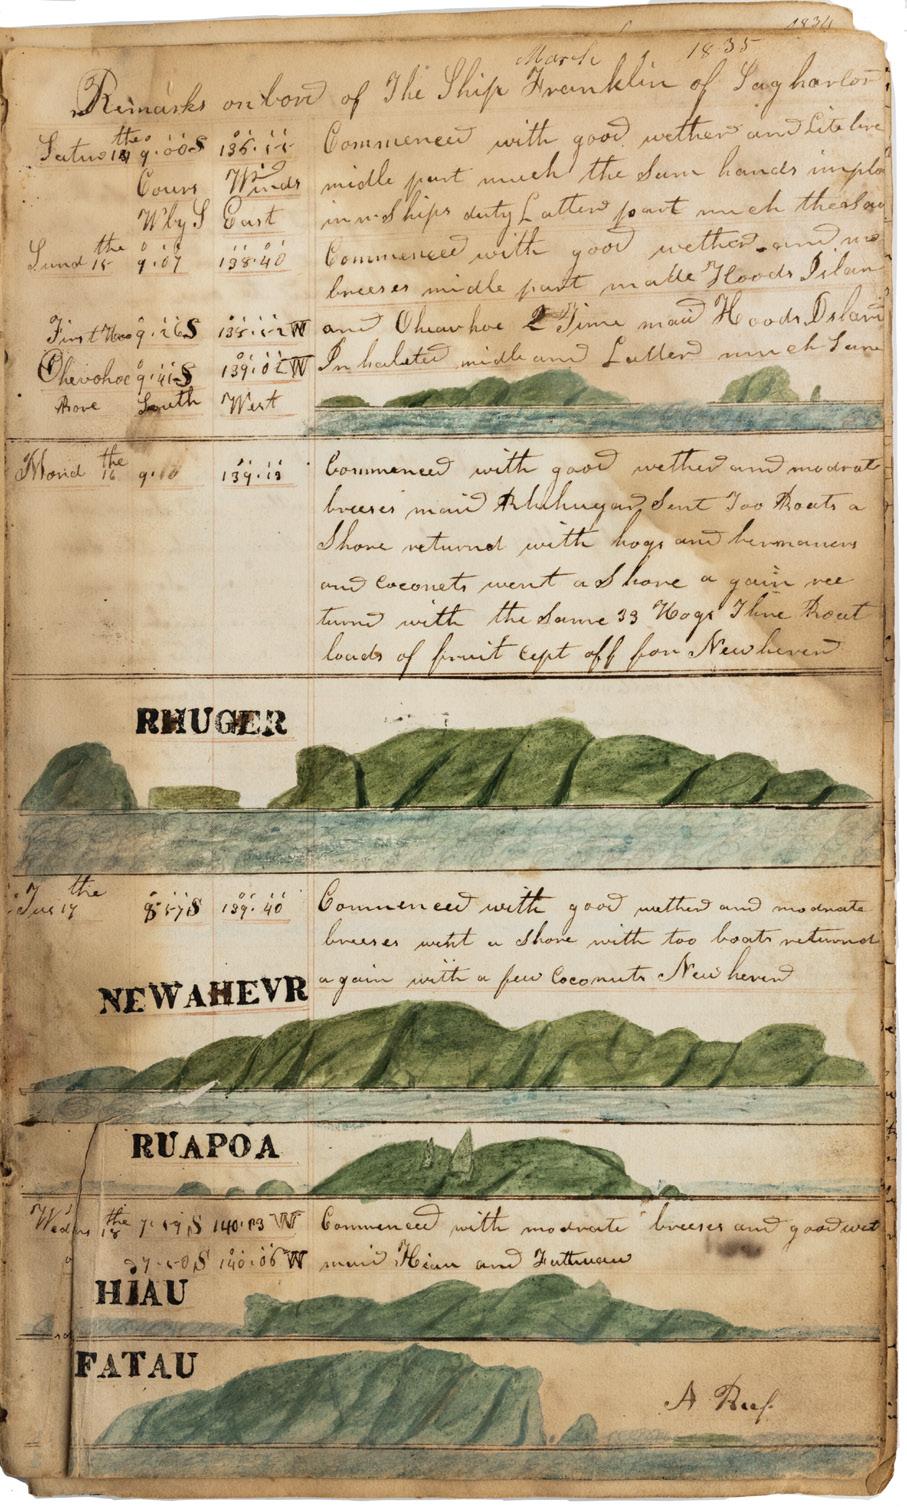 1834
March 1835
Remarks on bord of The Ship Franklin of Sagharbor
Satur the 14 9.00S 136. Commenced with good wether and Lite bre
Cours Winds midle part much the Sam hands implo
W by S East in Ships duty Latter part much the Sam
Sund the 15 9.07 138.40 Commenced with good wether and mo
breeses midle part made Hoods Islan
First Hoo 9.26S W and Ohevhoe 2 Time maid Hoods Island
Ohevohoe 9.41S 139.02W Inhabeted midle and Latter much Same
Bore South West
Mond the 16 9.10 139.13 Commenced with good wether and modrat
breeses maid Sent Too Boats a
Shore returned with hogs and bermaners
and Coconets went a Shore a gain ree
turnd with the Same 33 Hogs Thre Boat
loads of fruit cept off for Newheven
RHUGER
Tues the 17 8.57S 139.40 Commenced with good wether and modrate
breeses wint a Shore with too boats returned
again with a few Coconuts Newheven
NEWAHEVR
RUAPOA
Wedns the 18 7.59S 140.03W Commenced with modrate breeses and good wet
S 140.06W maid Hiau and Futtuau
HIAU
FATAU
A Reef